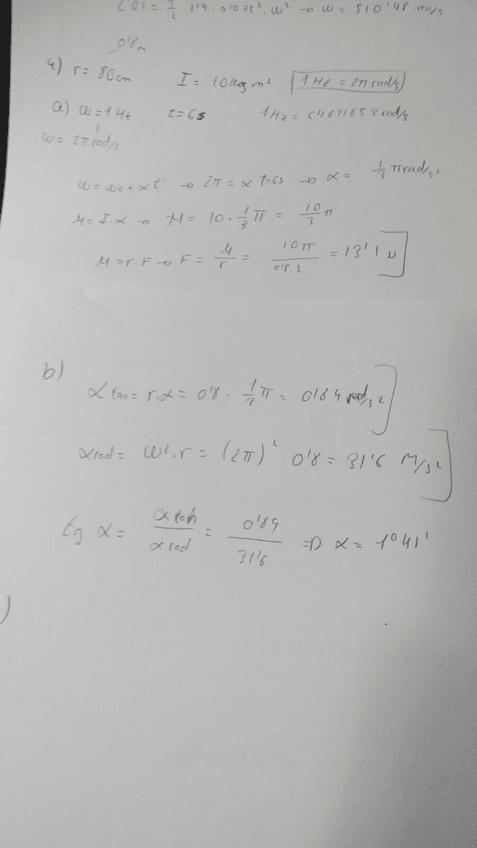 L01 = 1/2 · 1'4 · 0'025² · ω² → ω = 510'48 rev/s
0'8m
4) r = 80cm I = 10kg m² 1 Hz = 2π rad/s
a) ω = 1Hz t = 6s 1Hz = rad/s
ω = 2π rad/s
ω = ω₀ + αt → 2π = α t=6s → α = 1/3 π rad/s²
M = I·α → M = 10 · 1/3 π = 10/3 π
M = r·F → F = M/r = 10π/0'8·3 = 13'1 N
b)
α tan = r·α = 0'8 · 1/3 π = 0'84 rad/s²
α rad = ω²·r = (2π)² · 0'8 = 31'6 M/s²
tg α = α tan/α rad = 0'84/31'6 ⇒ α = 1°41'
)